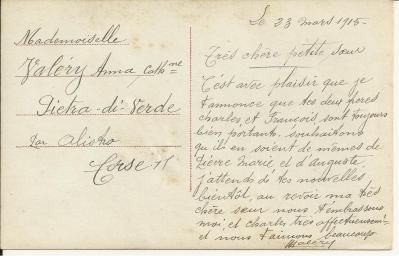 Mademoiselle
Valéry Anna Cathne
Pietra-di-Verde
par Alistro
Corse
Le 23 mars 1915-
Très chère petite sœur
C'est avec plaisir que je
t'annonce que tes deux frères
charles, et Francois, sont toujours
bien portants. souhaitons
qu'ils en soient de mêmes de
Pierre Marie, et d'Auguste
J'attends d'tes nouvelles
bientôt, au revoir ma très
chère sœur nous t'embrassons
moi et charles très affectueusement
et nous t'aimons beaucoup
Valéry